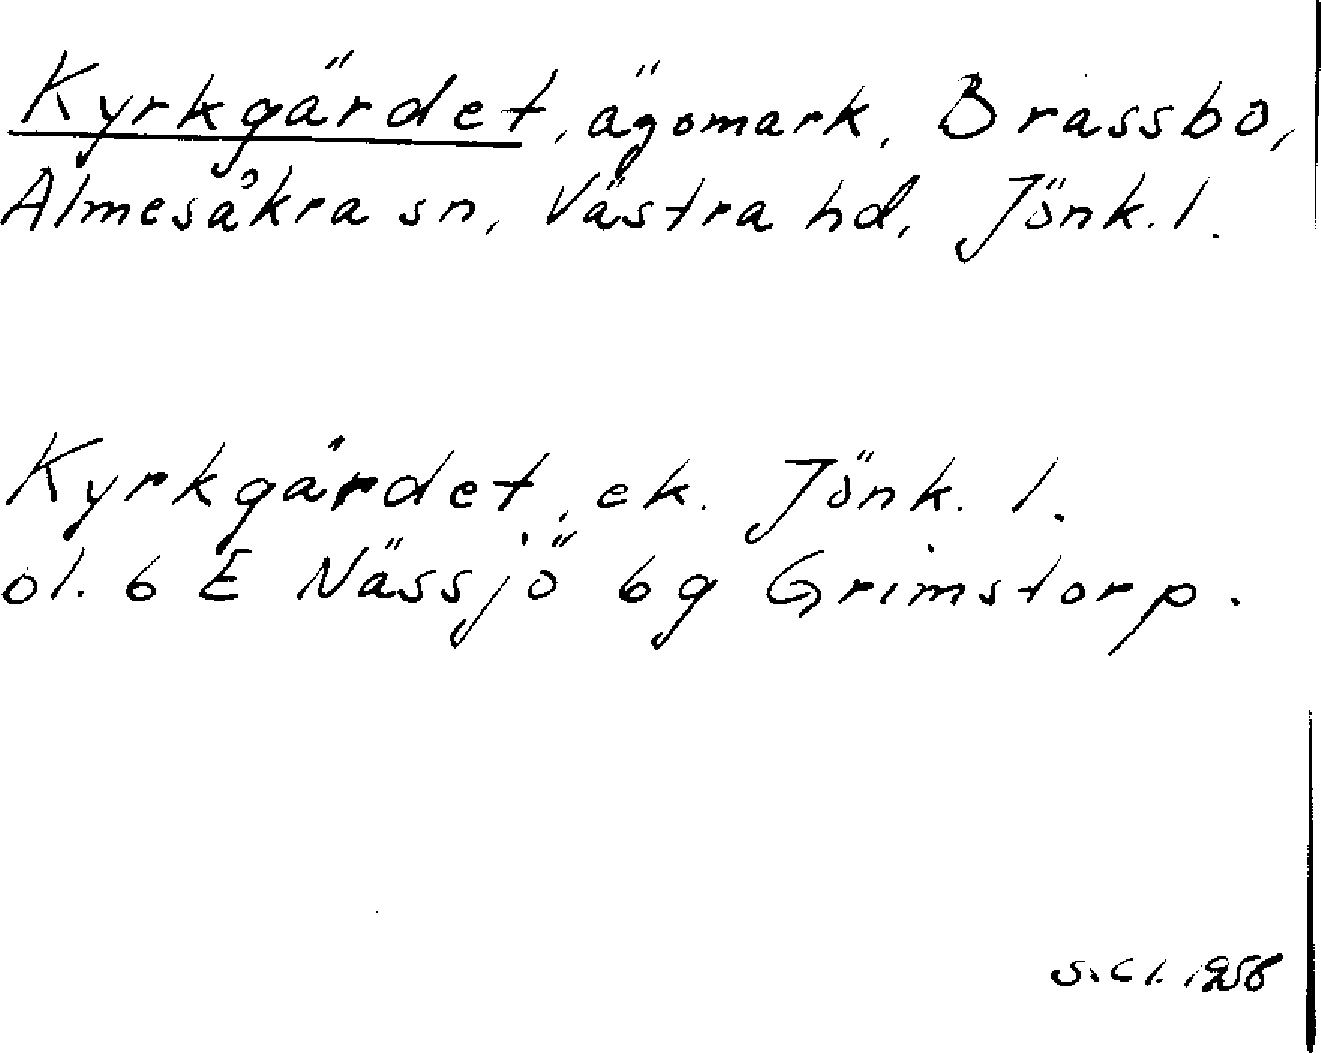 Kyrkgärdet, ägomark, Brassbo,
Almesåkra sn, Västra hd, Jönk. l.
Kyrkgärdet, ek. Jönk. l.
bl. 6 E Nässjö 6g Grimstorp.
S. Cl. 1958